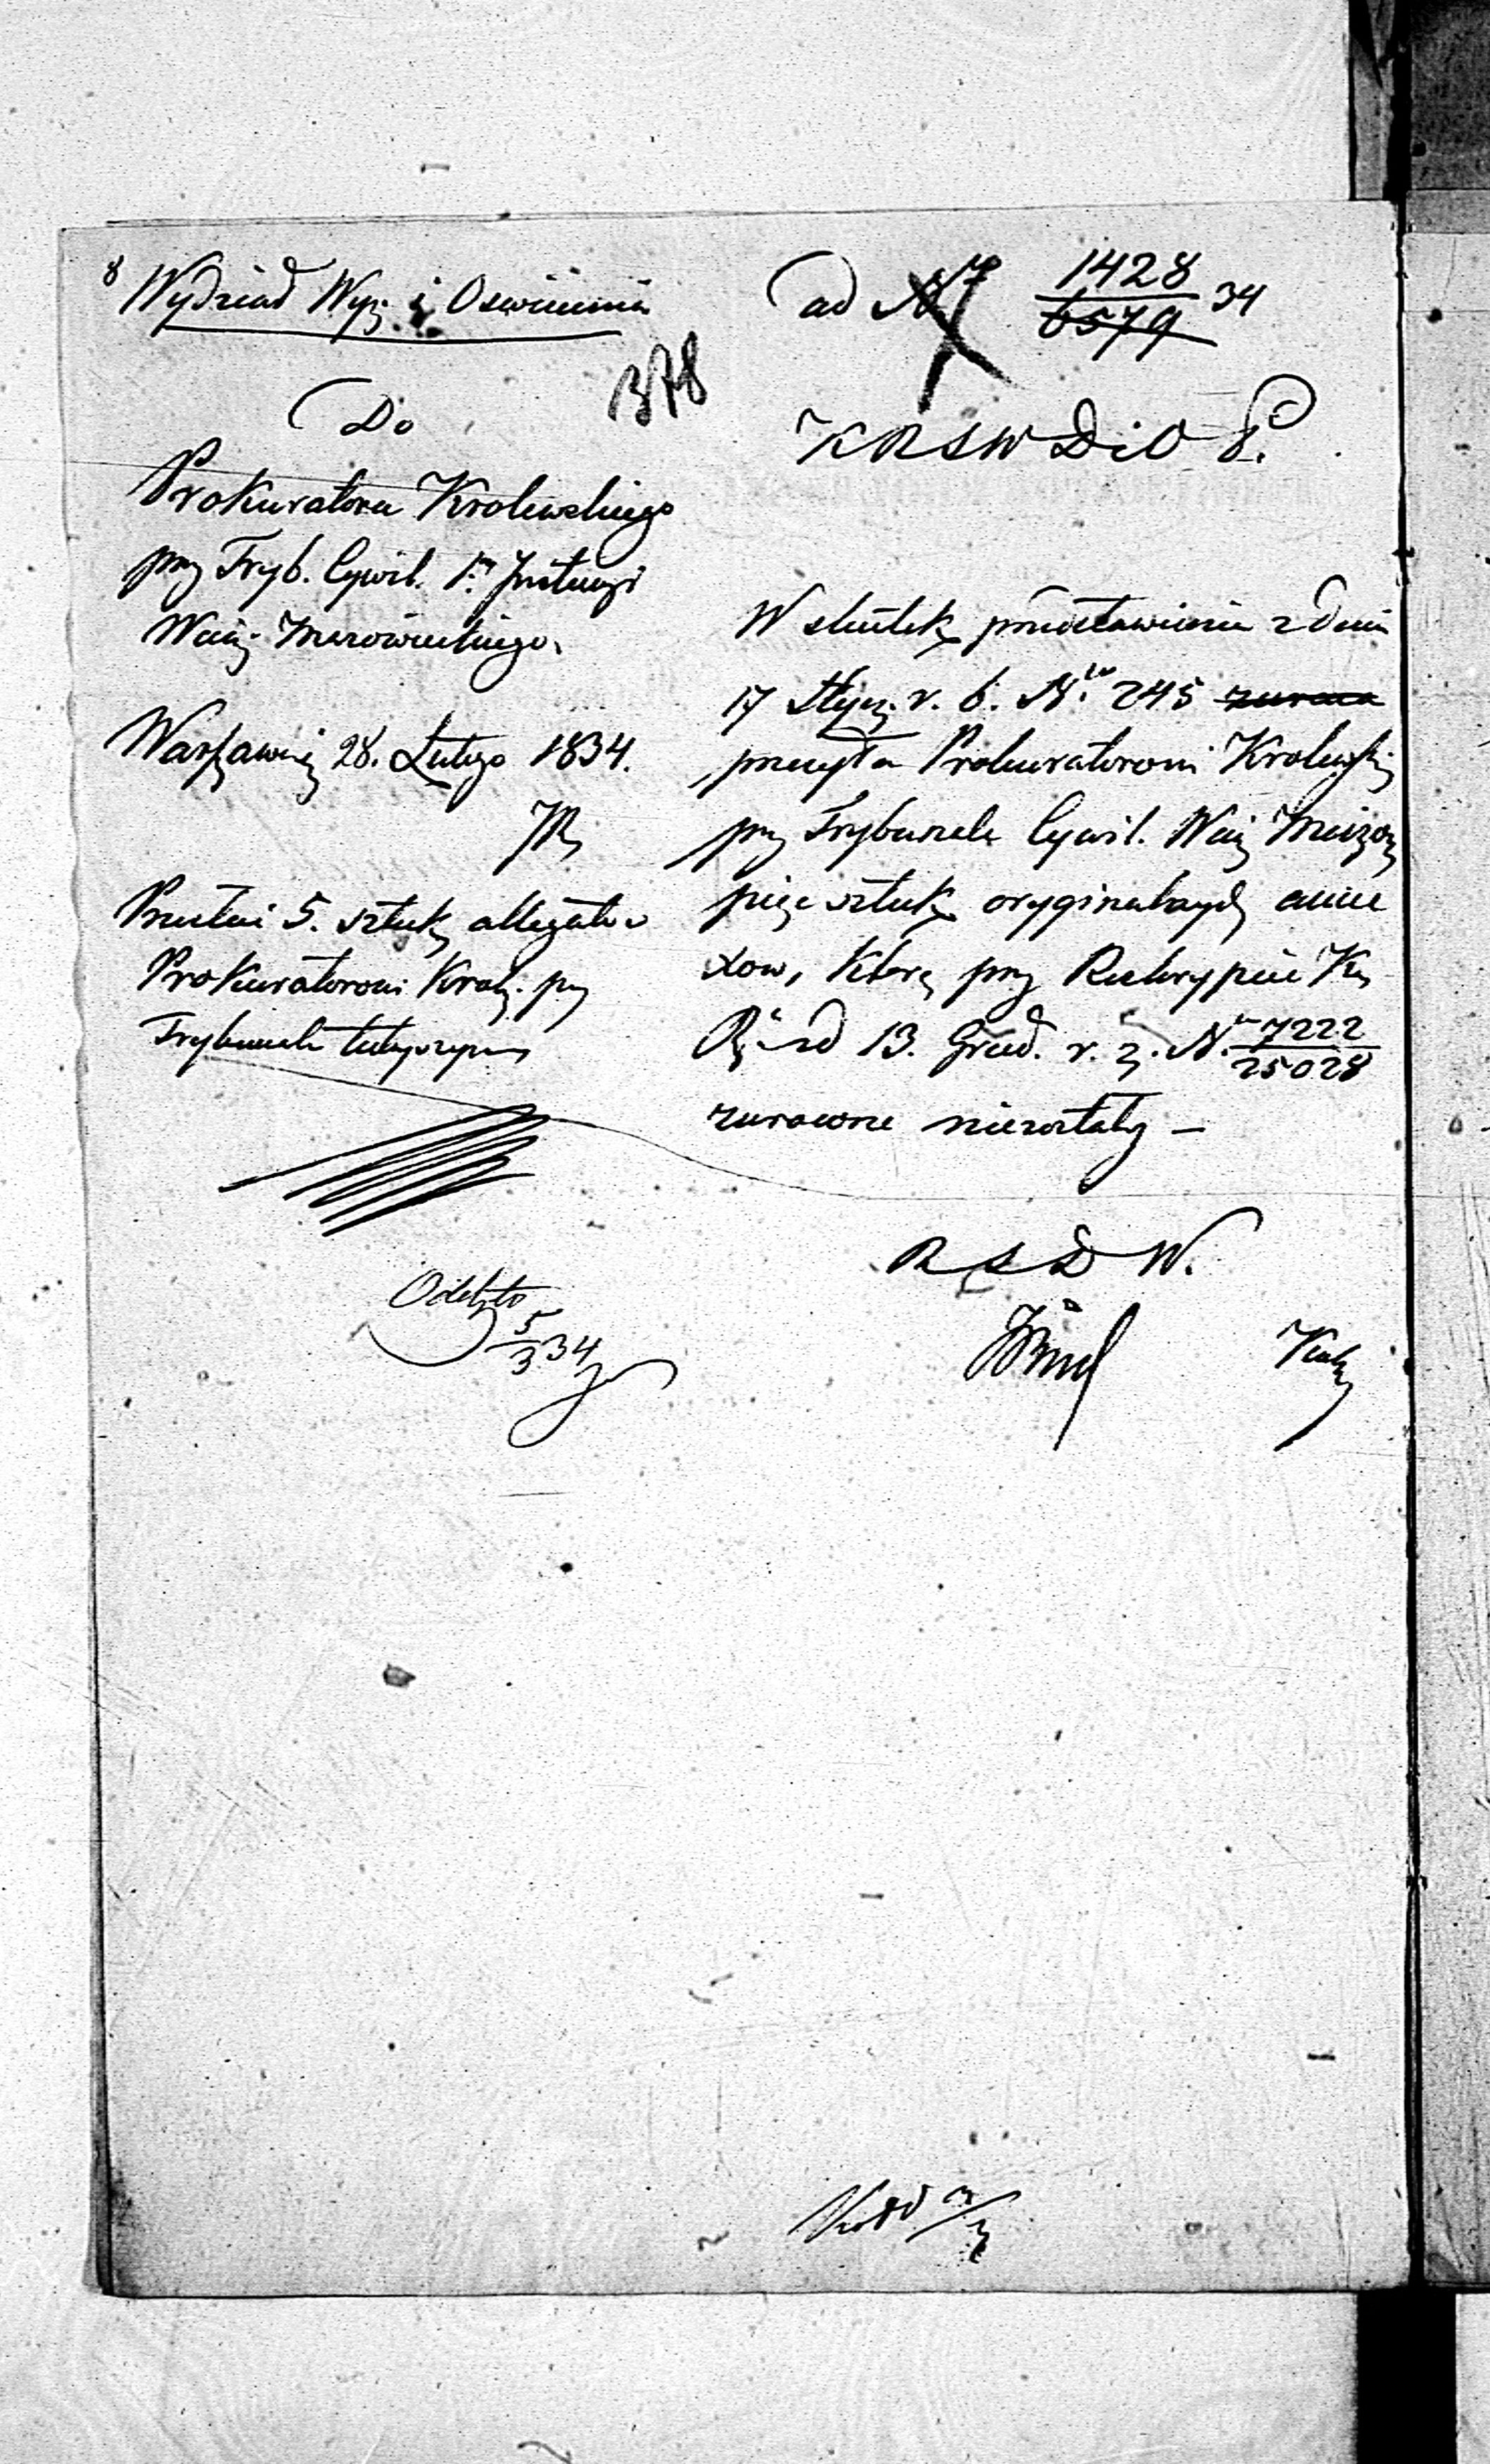 8 Wydział Wyz. i Oswiecenia
378
Do
Prokuratora Krolewskiego
przy Tryb. Cywil. 1. Instancyi
Wdz. Mazowieckiego.
Warszawie 28. Lutego 1834.
Przesłać 5. sztuk allegatów
Prokuratorowi Krol. przy
Trybunale tutejszym
Odebrto
5/3 34
ad N 1428/6579 34
KRSWDiOP.
W skutek przedstawienia z dnia
17 Stycz. r. b. N. 245 zwraca
przesyła Prokuratorowi Krolewski
przy Trybunale Cywil. Wdz. Mazow
pięć sztuk oryginalnych anne
xow, które przy Reskrypcie Kom
Rz. z d 13. Grud. r. z. N. 7222/25028
zwrocone niezostały –
R S D W.